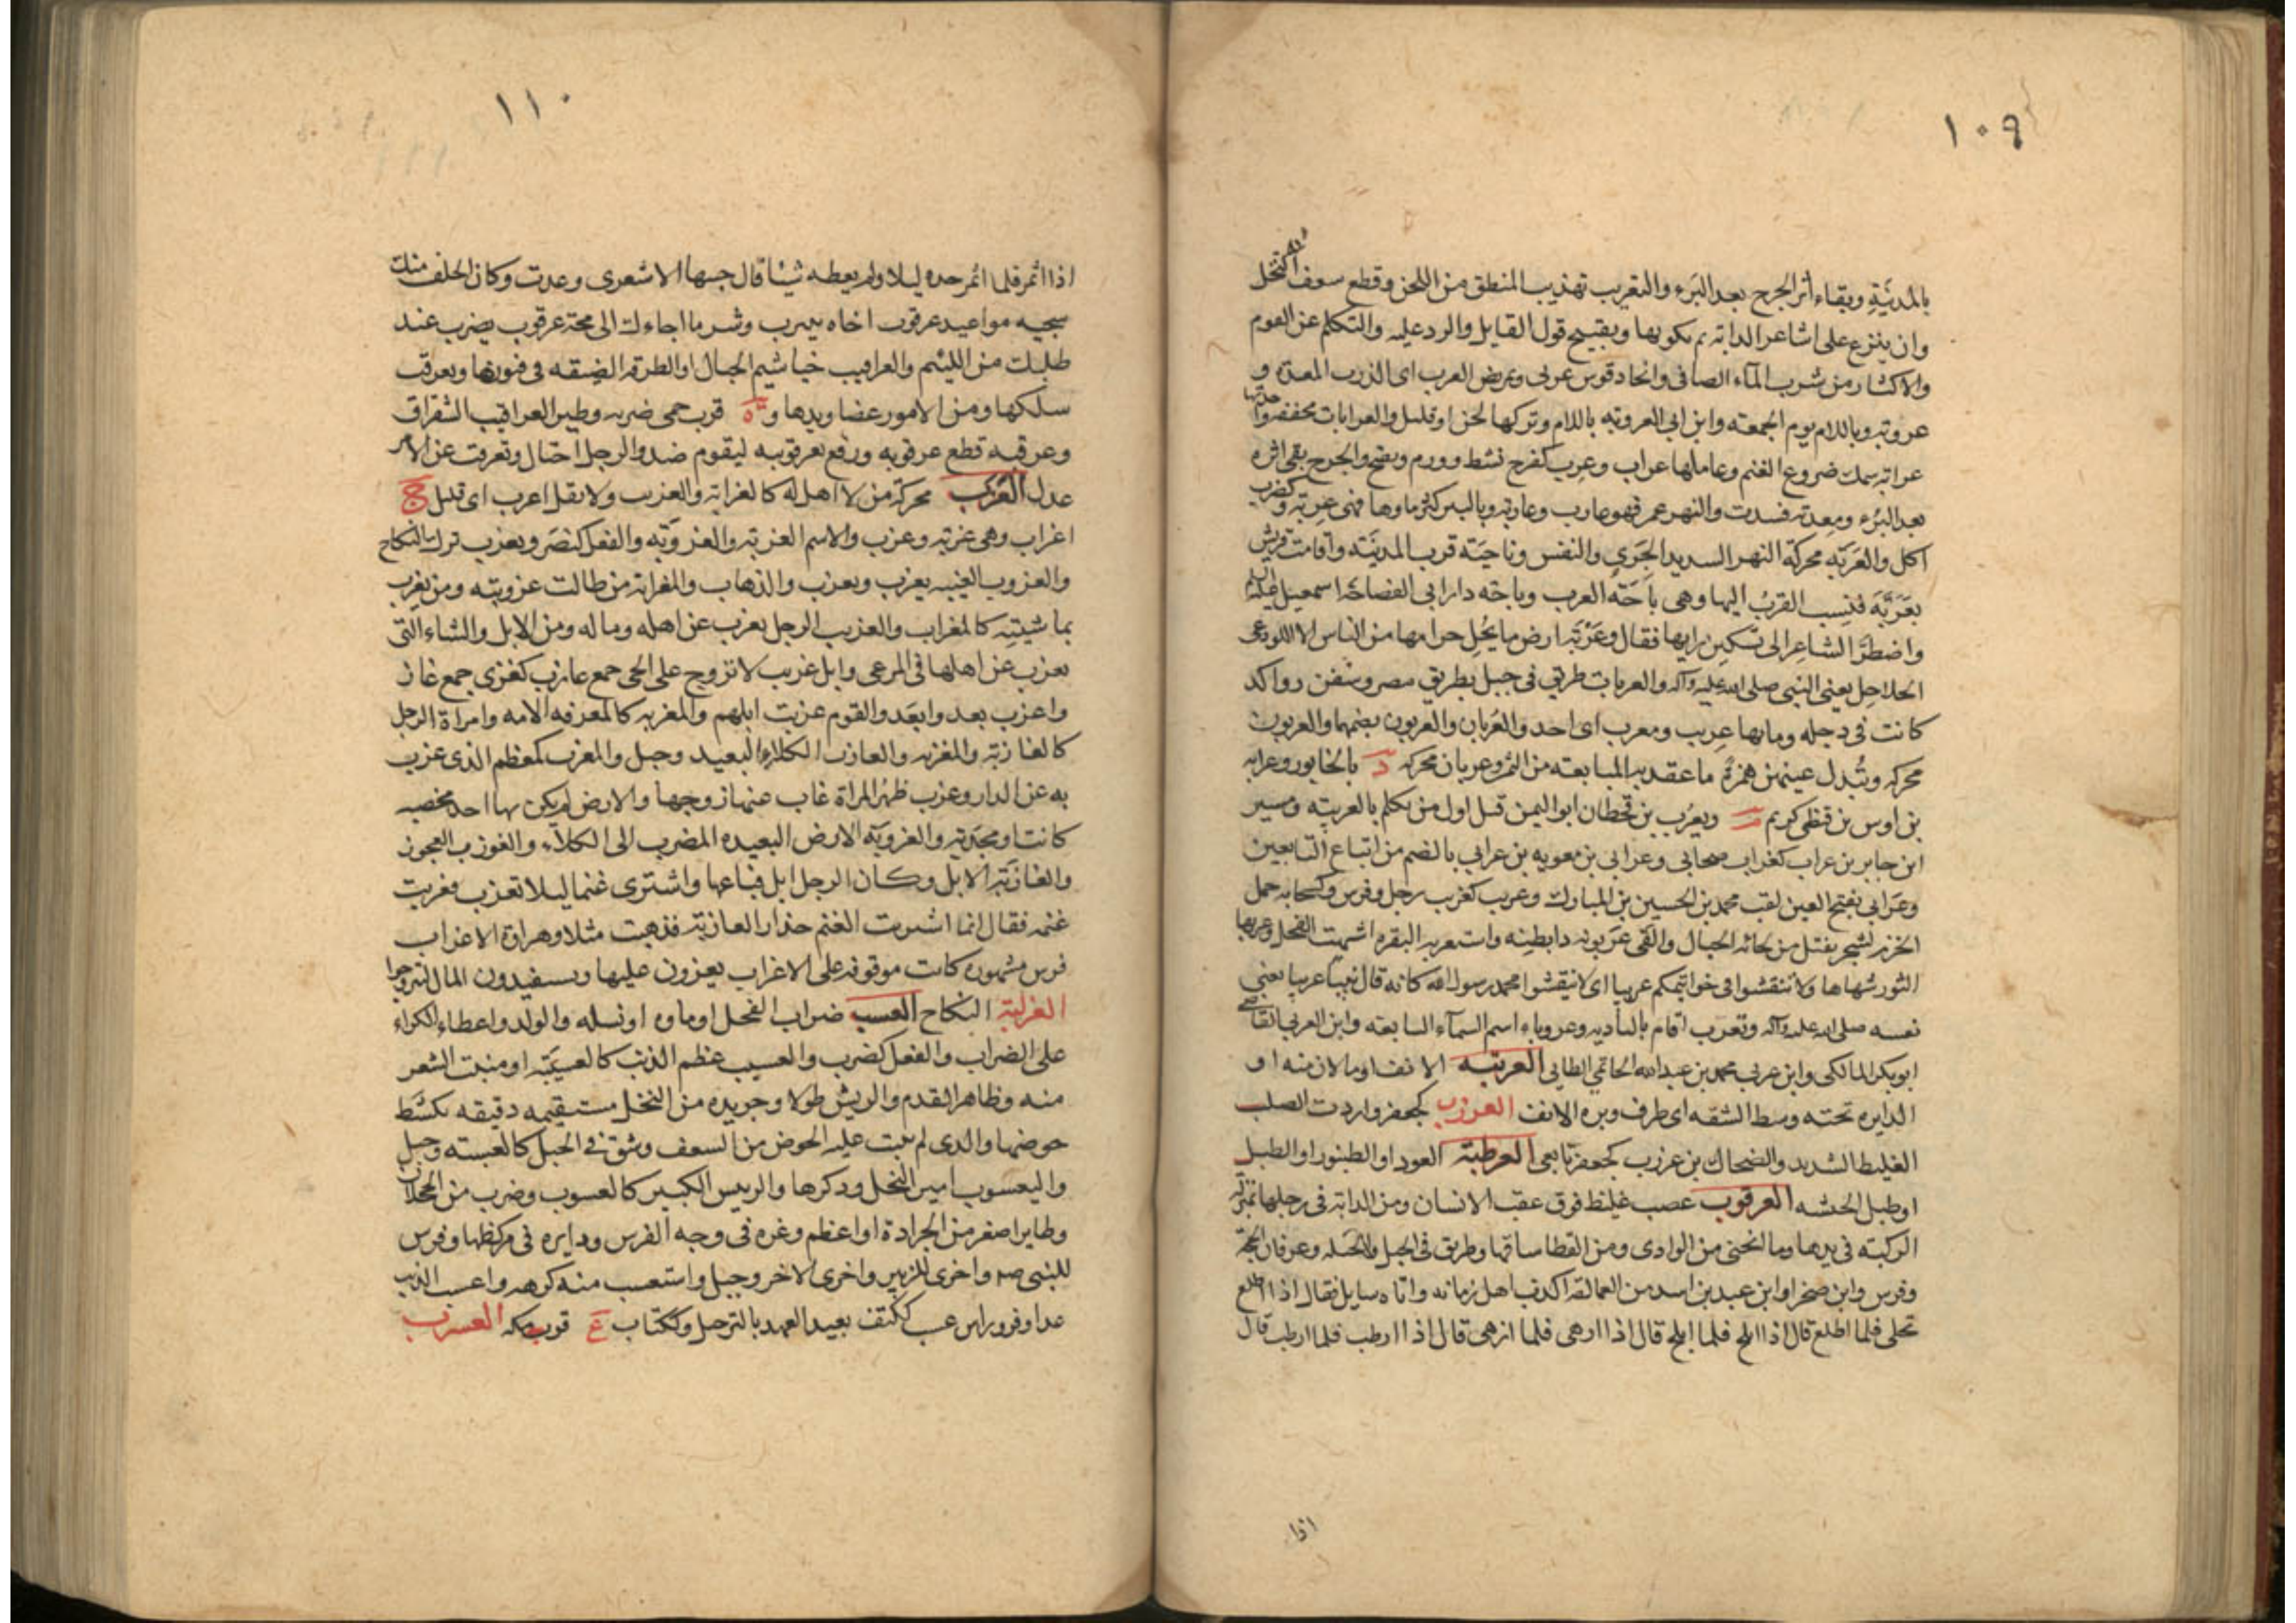 ١٠٩
بالمدينة وبقاء أثر الجرح بعد البرء والتعريب تهذيب المنطق من اللحن وقطع سعف النخل
وان ينزع على اشاعر الدابة ثم يكويها وتقبيح قول القايل والرد عليه والتكلم عن القوم
والاكثار من شرب المآء الصافى واتخاد قوس عربى وعريض العرب اى الذرب المعدة و
عروبة وباللام يوم الجمعة وابن ابى العروبة باللام وتركها لحن او قليل والعرابات مخففة واحدتها
عرابة شمل ضروع الغنم وعاملها عراب وعرب كفرح نشط وورم وتقيح والجرح بقى اثره
بعد البرء ومعدته فسدت والنهر غمر فهو عارب وعاربة والبير كثر ماوها فهى عربة وكضرب
اكل والعربة محركة النهر السديد الجرى والنفس وناحية قرب المدينة واقامت قريش
بعربة فنسب العرب اليها وهى باحة العرب وباحة دار ابى الفصاحة اسمعيل عليه السلام
واضطر الشاعر الى تسكين رايها فقال وعربة ارض ما يحل حرامها من الناس الا اللوذعى
الحلاحل يعنى النبى صلى الله عليه وآله والعربات طريق فى جبل بطريق مصر وسفن رواكد
كانت فى دجله وما بها عريب ومعرب اى احد والعربان والعربون بضمهما والعربون
محركه وتبدل عينهن همزة ما عقد به المبايعة من الثمن وعربان محركه د بالخابور وعرابه
بن اوس بن قيظى كريم م ويعرب بن قحطان ابو اليمن قيل اول من تكلم بالعربية وبسير
ابن جابر بن عراب كغراب صحابى وعرابى بن معويه بن عرابى بالضم من اتباع التابعين
وعرابى بفتح العين لقب محمد بن الحسين بن المبارك وعريب كغريب رجل وفرس وكسحابه حمل
الخزم لشجر يفتل من لحائه الحبال والقى عربونه ذا بطنه واستعربت البقره اشتهت الفحل وعربها
الثور شهاها ولا تنقشوا فى خواتيمكم عربيا اى لا تنقشوا محمد رسول الله كانه قال نبيا عربيا يعنى
نفسه صلى الله عليه وآله وتعرب اقام بالبادية وعروباء اسم السمآء السابعة وابن العربى القاضى
ابوبكر المالكى وابن عربى محمد بن عبدالله الحاتمى الطايى العرتبه الانف او ما لان منه او
الدايره تحته وسط الشفه اى طرف وتره الانف العرزب كجعفر واردت الصلب
الغليظ الشديد والضحاك بن عرزب كجعفر تابعى العرطبة العود او الطنبور او الطبل
او طبل الحبشه العرقوب عصب غليظ فوق عقب الانسان ومن الدابة فى رجلها بمنزلة
الركبة فى يدها وما انحنى من الوادى ومن القطا ساقها وطريق فى الجبل والحيله وعرفان الحجة
وفرس وابن صخر او ابن عبد بن اسد من العمالقة اكذب اهل زمانه واتاه سايل فقال اذا اطلع
نخلى فلما اطلع قال اذا ابلح فلما ابلح قال اذا ازهى فلما ازهى قال اذا ارطب فلما ارطب قال
اذا
١١٠
اذا اثمر فلما اثمر جده ليلا ولم يعطه شيئا قال جبيها الاشعرى وعدت وكان الخلف منك
سجيه مواعيد عرقوب اخاه بيترب وشر ما اجاءك الى مخة عرقوب يضرب عند
طلبك من اللئيم والعراقيب خياشيم الجبال او الطرق الضيقه فى متونها وتعرقب
سلكها ومن الامور عضاويدها و ة قرب حمى ضريه وطير العراقيب الشقراق
وعرقبه قطع عرقوبه ورفع بعرقوبيه ليقوم ضد والرجل احتال وتعرقب عن الامر
عدل العزب محركة من لا اهل له كالمعزابة والعزيب ولا تقل اعزب اى قليل ج
اعزاب وهى عزبة وعزب والاسم العزبة والعزوبة والفعل كنصر وتعزب ترك النكاح
والعزوب الغيبه يعزب ويعزب والذهاب والمعزابة من طالت عزوبته ومن يعزب
بماشيته كالمعزاب والعزيب الرجل يعزب عن اهله وماله ومن الابل والشاء التى
تعزب عن اهلها فى المرعى وابل عزيب لا تروح على الحى جمع عازب كغزى جمع غاز
واعزب بعد وابعد والقوم عزبت ابلهم والمعزبه كالمغرفه الامه وامراة الرجل
كالعازبة والمعزبه والعازب الكلاء البعيد وجبل والمعزب كمعظم الذى عزب
به عن الدار وعزب ظهر المراة غاب عنها زوجها والارض لم يكن بها احد مخصبه
كانت او مجدبة والعزوبة الارض البعيده المضرب الى الكلاء والعوزب العجوز
والعازبة الابل وكان الرجل ابل فباعها واشترى غنما ليلا تعزب فعزبت
غنمه فقال انما اشتريت الغنم حذار العازبة فذهبت مثلا وهراوة الاعزاب
فرس مشهوره كانت موقوفه على الاعزاب يغزون عليها ويستفيدون المال ليتزوجوا
العزلبة النكاح العسب ضراب الفحل او ماوه او نسله والولد واعطاء الكراء
على الضراب والفعل كضرب والعسيب عظم الذنب كالعسيبة او منبت الشعر
منه وظاهر القدم والريش طولا وجريده من النخل مستقيمه دقيقه يكشط
خوضها والذى لم ينبت عليه الخوض من السعف وشق فى الجبل كالعسبه وجبل
واليعسوب امير النحل وذكرها والرييس الكبير كالعسوب وضرب من الحجلان
وطاير اصغر من الجرادة او اعظم وغره فى وجه الفرس ودايره فى مركضها وفرس
للنبى ص وآخرى للزبير واخرى لاخر وجبل واستعسب منه كرهه واعسب الذيب
عدا وفر وراس عسب ككتف بعيد العهد بالترجل وككتاب ع قرب مكه العسرب